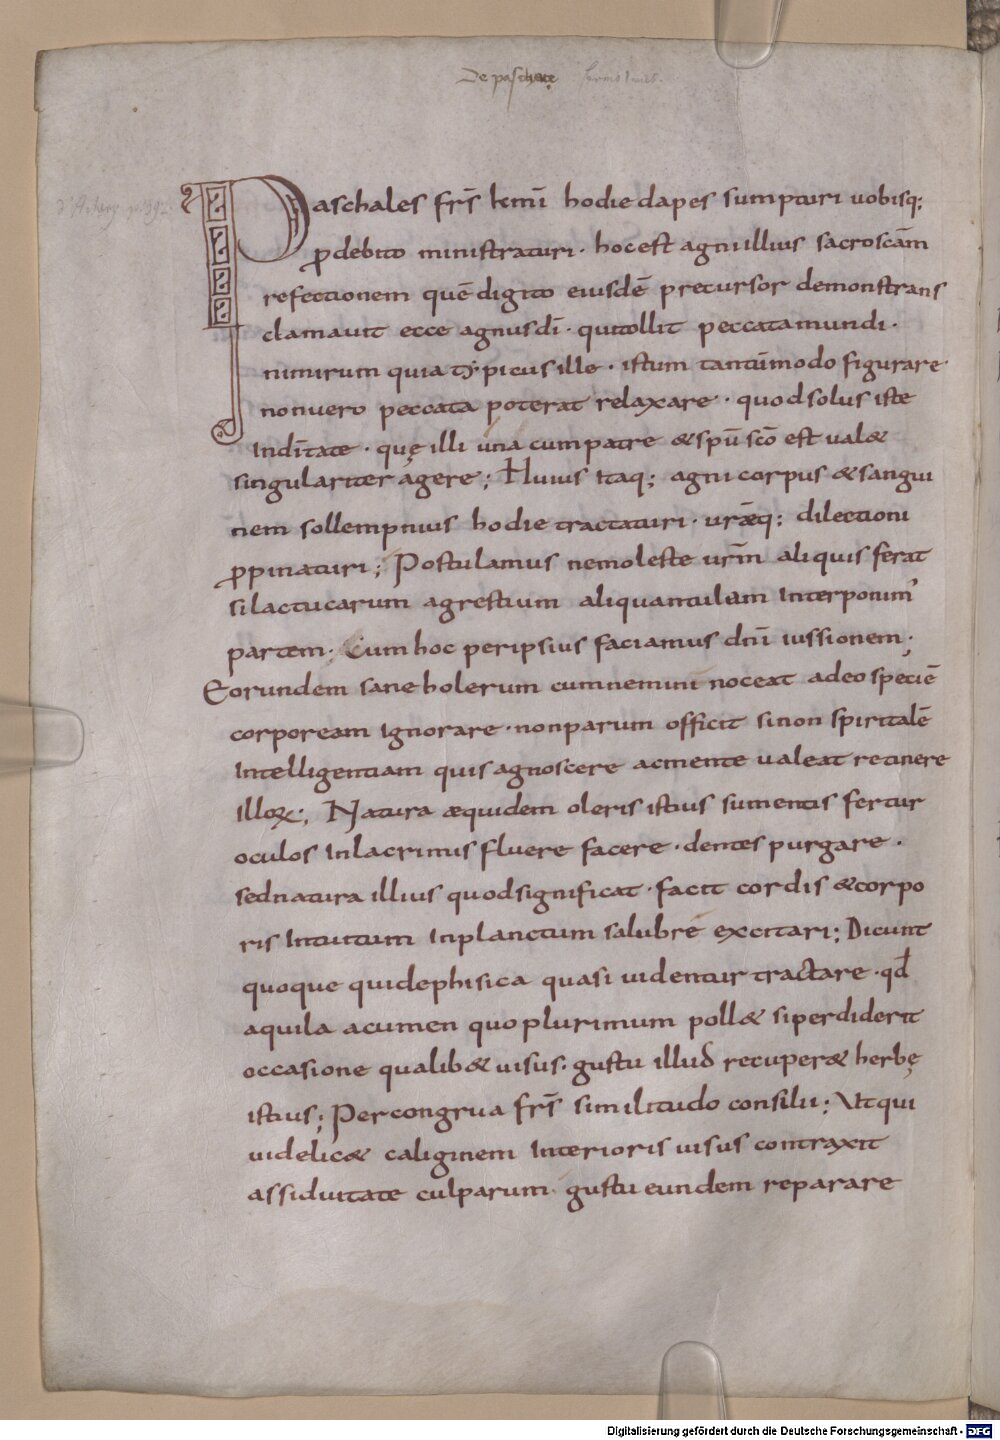 De paschate
Paschales fr̄s km̄i hodie dapes sumpturi uobisq;
ꝓdebito ministraturi · hoc est agni illius sacroscām
refectionem quē digito eiusdē precursor demonstrans
clamauit ecce agnus dī · qui tollit peccata mundi ·
nimirum quia typicus ille · istum tantūmodo figurare
non uero peccata poterat relaxare · quod solus iste
In dītate · quę illi una cum patre & spū scō est ual&
singulariter agere; Huius itaq; agni corpus & sangui
nem sollempnius hodie tractaturi · urǣq; dilectioni
ꝓpinaturi; Postulamus ne moleste urm̄ aliquis ferat
si lactucarum agrestium aliquantulam Interponim'
partem; Cum hoc per ipsius faciamus dnī iussionem;
Eorundem sane holerum cum nemini noceat adeo speciē
corpoream Ignorare · non parum officit si non spiritalē
Intelligentiam quis agnoscere ac mente ualeat retinere
Illoꝝ; Natura æquidem oleris istius sumentis fertur
oculos In lacrimis fluere facere · dentes purgare ·
sed natura illius quod significat · facit cordis & corpo
ris Intuitum In planctum salubre excitari; Dicunt
quoque qui de phisica quasi uidentur tractare · qd̄
aquila acumen quo plurimum poll& si perdiderit
occasione qualib& uisus · gustu illud recuper& herbę
istius; Per congrua fr̄s similitudo consilii; Vt qui
uidelic& caliginem Interioris uisus contraxit
assiduitate culparum gustu eundem reparare
Digitalisierung gefördert durch die Deutsche Forschungsgemeinschaft - DFG